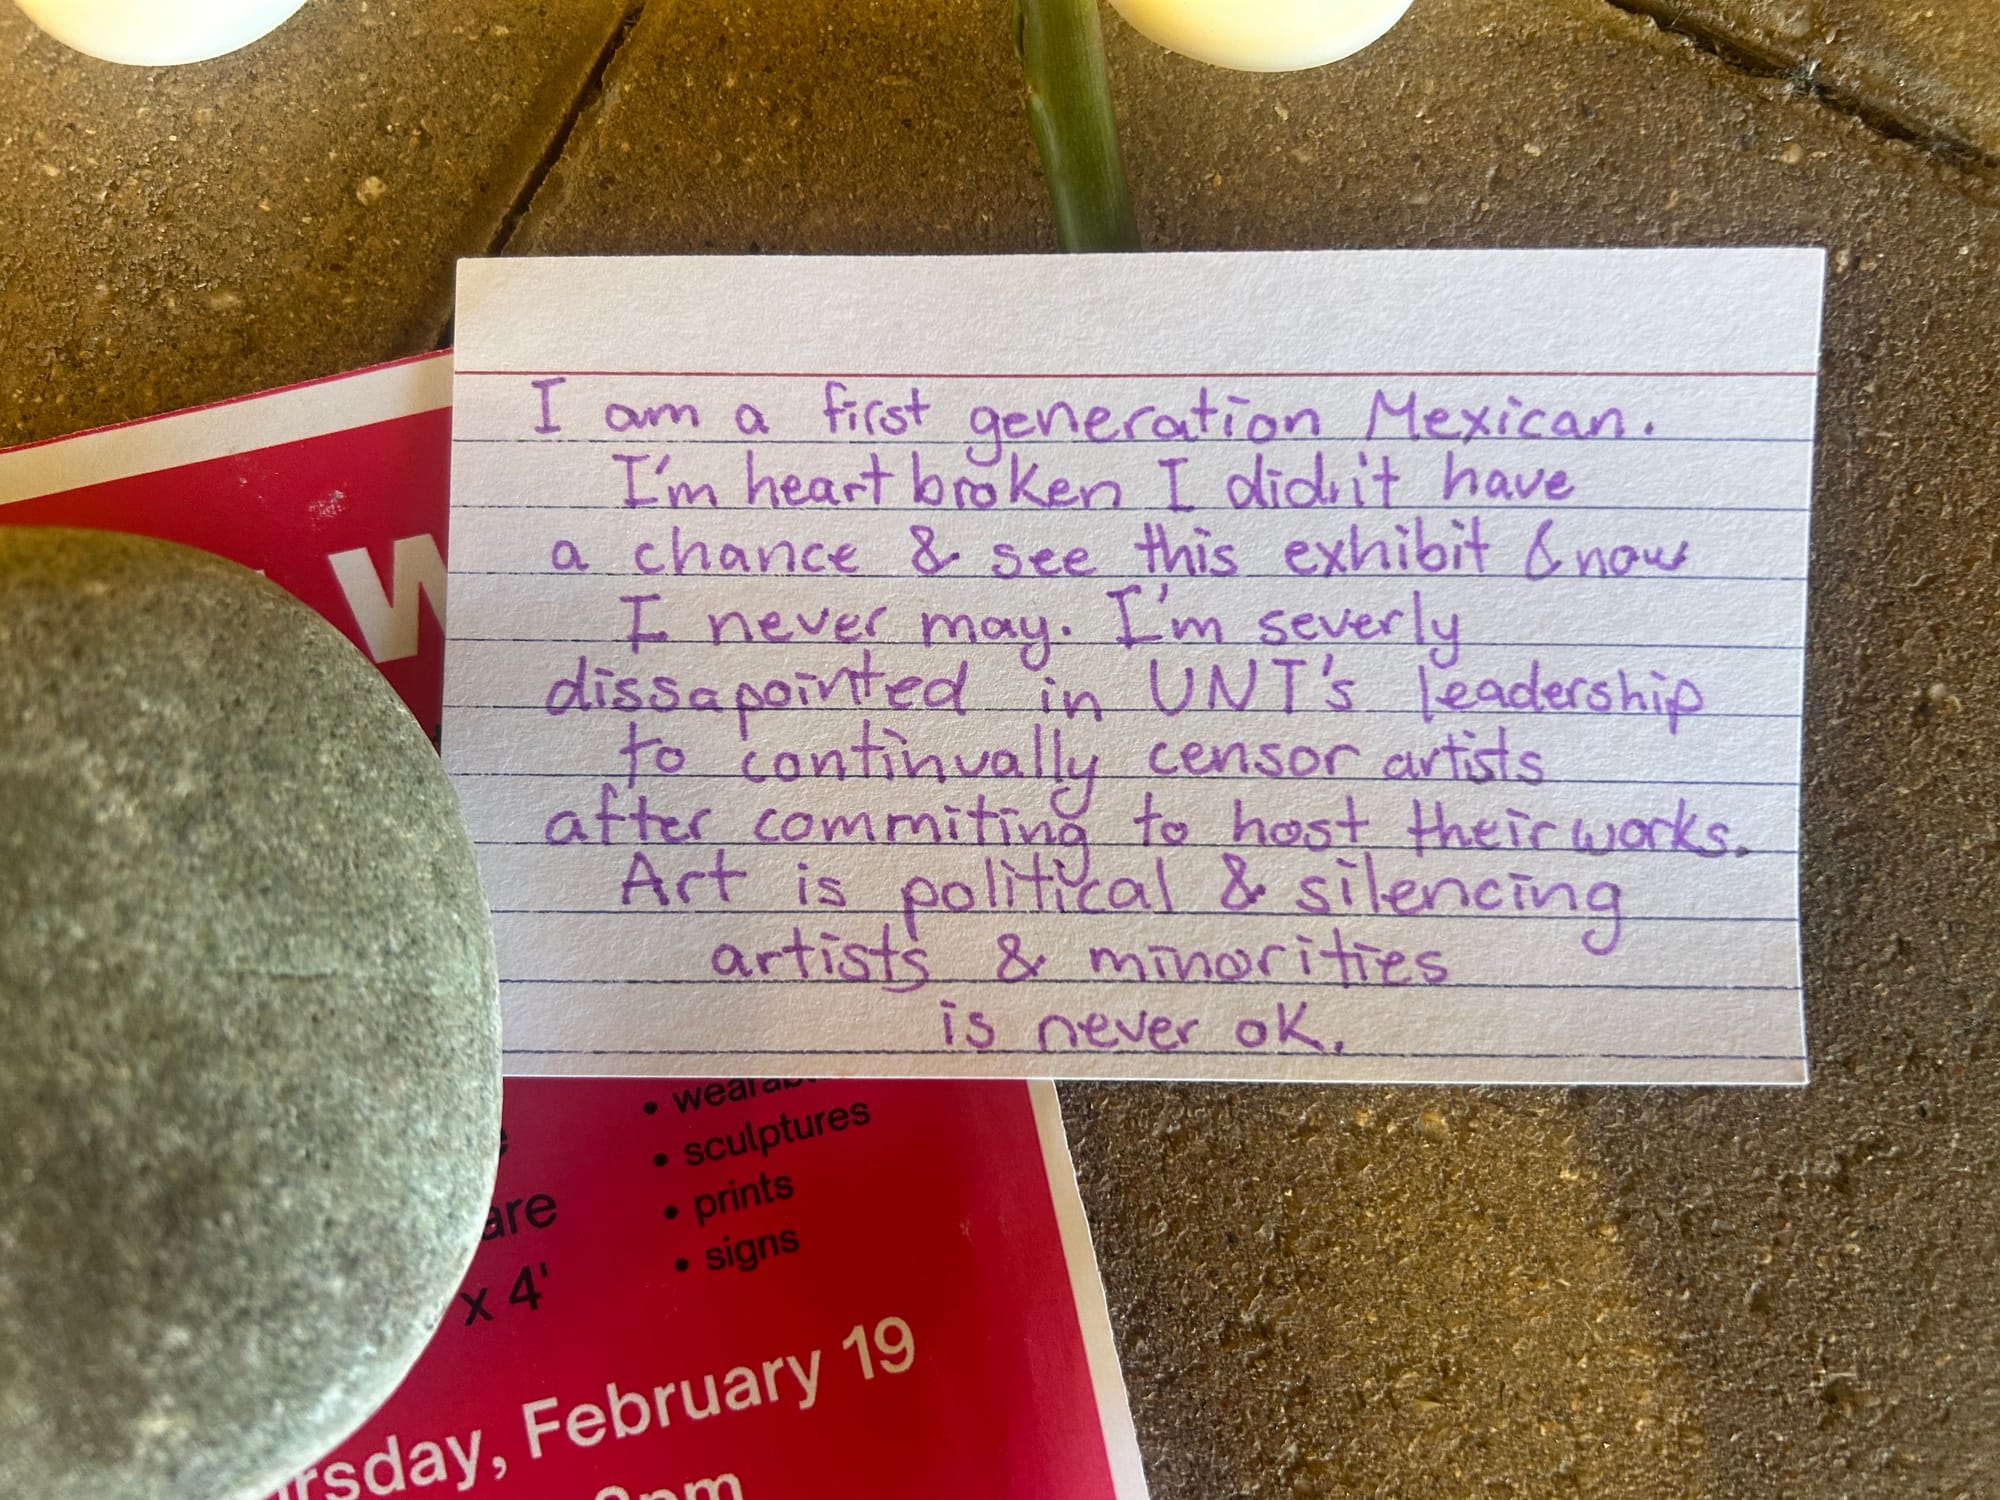 I am a first generation Mexican.
I'm heart broken I didn't have
a chance & see this exhibit & now
I never may. I'm severly
dissapointed in UNT's leadership
to continually censor artists
after commiting to host their works.
Art is political & silencing
artists & minorities
is never ok.
W
• sculptures
• prints
• signs
x 4'
February 19